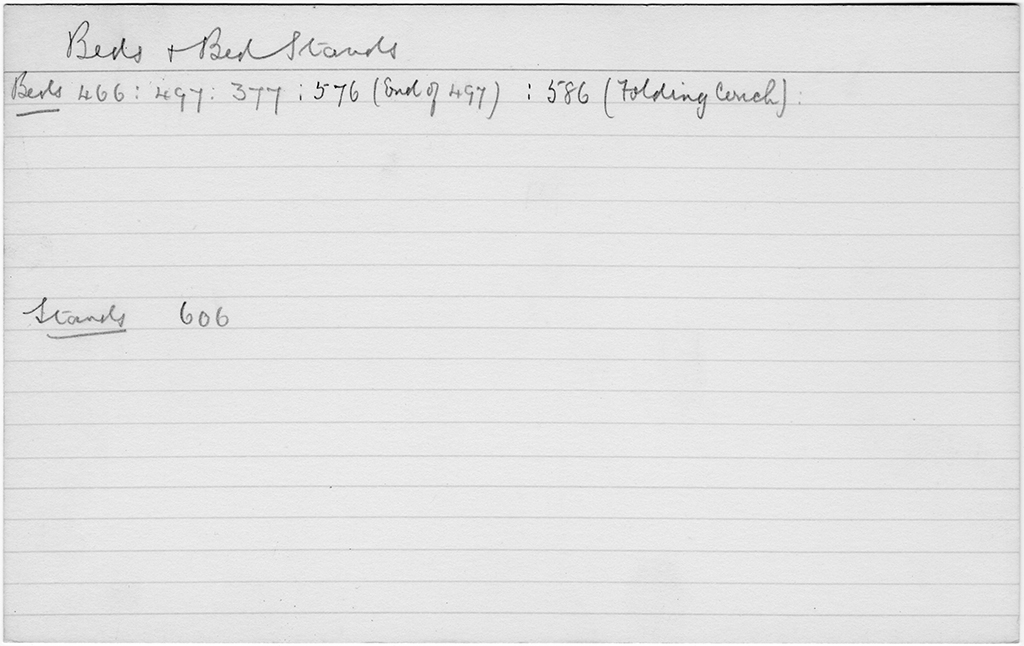 Beds + Bed Stands
Beds 466 : 497 : 377 : 576 (End of 497) : 586 (Folding Couch) :
Stands 606